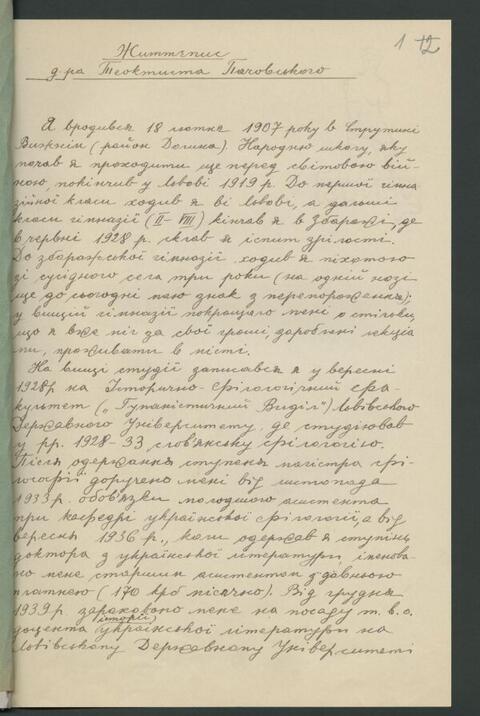 1 12
Життєпис
д-ра Теоктиста Пачовського
Я вродився 18 лютня 1907 року в Струтині
Вижнім (район Долина). Народню школу, яку
почав я проходити ще перед світовою вій-
ною, покінчив у Львові 1919 р. До першої гімна
зійної кляси ходив я ві Львові, а дальші
кляси гімназії (II–VIII) кінчав я в Збаражі, де
в червні 1928 р. склав я іспит зрілості.
До збаражської гімназії ходив я піхотою
зі сусідного села три роки (на одній нозі
ще до сьогодні маю знак з перемороження);
у вищій гімназії покращало мені о стільки,
що я вже міг за свої гроші, зароблені лекція
ми, проживати в місті.
На вищі студії записався я у вересні
1928 р на Історично-філологічний фа-
культет („Гуманістичний Виділ") Львівського
Державного Університету, де студіював
у рр. 1928-33 слов'янську філологію.
Після одержання ступеня магістра фі-
лософії доручено мені від листопада
1933 р. обов'язки молодшого асистента
при кафедрі української філології, а від
вересня 1936 р., коли одержав я ступінь
доктора з української літератури, іменова
но мене старшим асистентом з давньою
платнею (170 крб місячно). Від грудня
1939 р. зараховано мене на посаду т. в. о.
доцента історії української літератури на
Львівському Державному Університеті